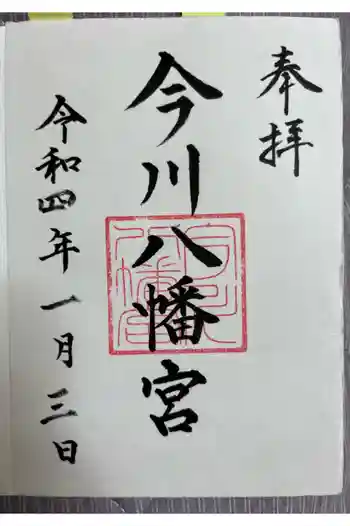 奉拝
今川八幡宮
令和四年一月三日